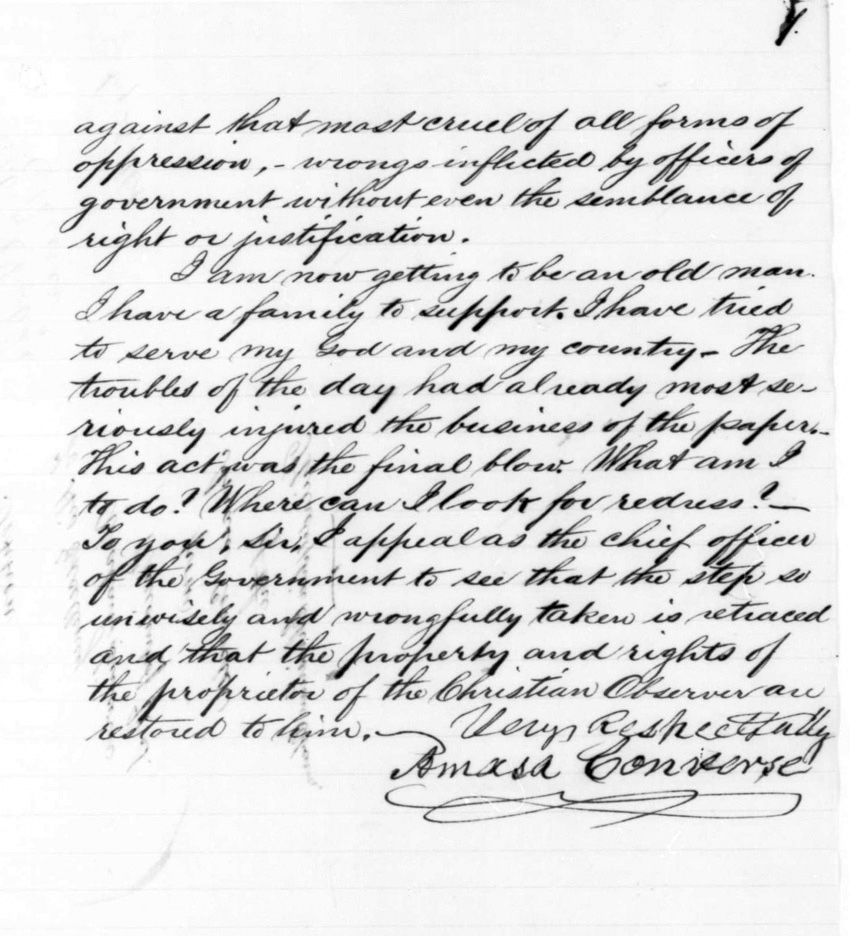 against that most cruel of all forms of
oppression, - wrongs inflicted by officers of
government without even the semblance of
right or justification.
I am now getting to be an old man.
I have a family to support. I have tried
to serve my God and my country - The
troubles of the day had already most se-
riously injured the business of the paper. -
This act was the final blow. What am I
to do? Where can I look for redress? —
To you, Sir, I appeal as the chief officer
of the Government to see that the step so
unwisely and wrongfully taken is retraced
and that the property and rights of
the proprietor of the Christian Observer are
restored to him. — Very Respectfully
Amasa Converse